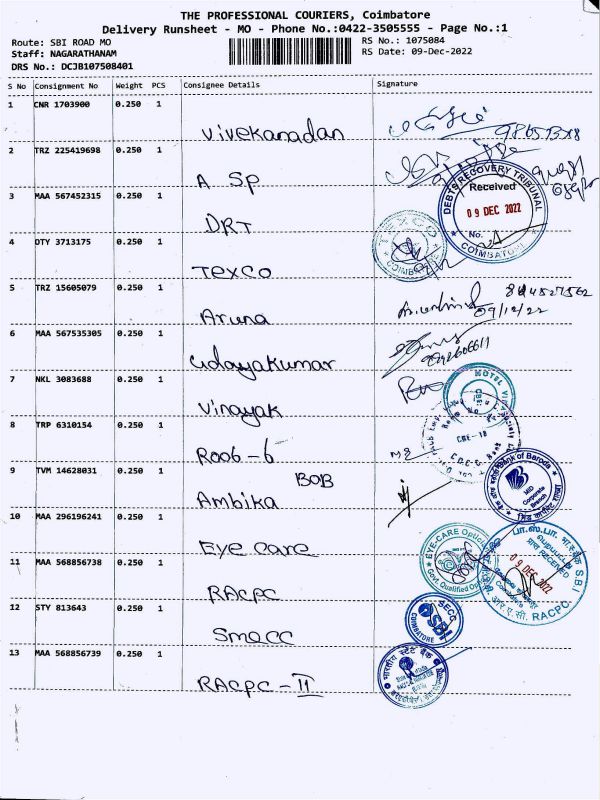 THE PROFESSIONAL COURIERS, Coimbatore
Delivery Runsheet - MO - Phone No.:0422-3505555 - Page No.:1
Route: SBI ROAD MO
RS No.: 1075084
Staff: NAGARATHANAM
RS Date: 09-Dec-2022
DRS No.: DCJB107508401
S No Consignment No Weight PCS Consignee Details Signature
1 CNR 1703900 0.250 1
Vivekanadan
2 TRZ 225419698 0.250 1
A SP
3 MAA 567452315 0.250 1
DRT
DEBTS RECOVERY TRIBUNAL
Received
09 DEC 2022
No.
COIMBATORE
4 OTY 3713175 0.250 1
Texco
TEXCO
COIMBATORE
5 TRZ 15605079 0.250 1
Aruna
09/12/22
6 MAA 567535305 0.250 1
Udayakumar
7 NKL 3083688 0.250 1
Vinayak
8 TRP 6310154 0.250 1
Roob-6
CBE-18
9 TVM 14628031 0.250 1
BOB
Ambika
Bank of Baroda
Mid Corporate Branch
10 MAA 296196241 0.250 1
Eye care
EYE-CARE Opticals
Govt. Qualified
11 MAA 568856738 0.250 1
RACPC
09 DEC 2022
S.B.I
RACPC
12 STY 813643 0.250 1
Smecc
SECC
SBI
COIMBATORE
13 MAA 568856739 0.250 1
RACPC-II
भारतीय स्टेट बैंक